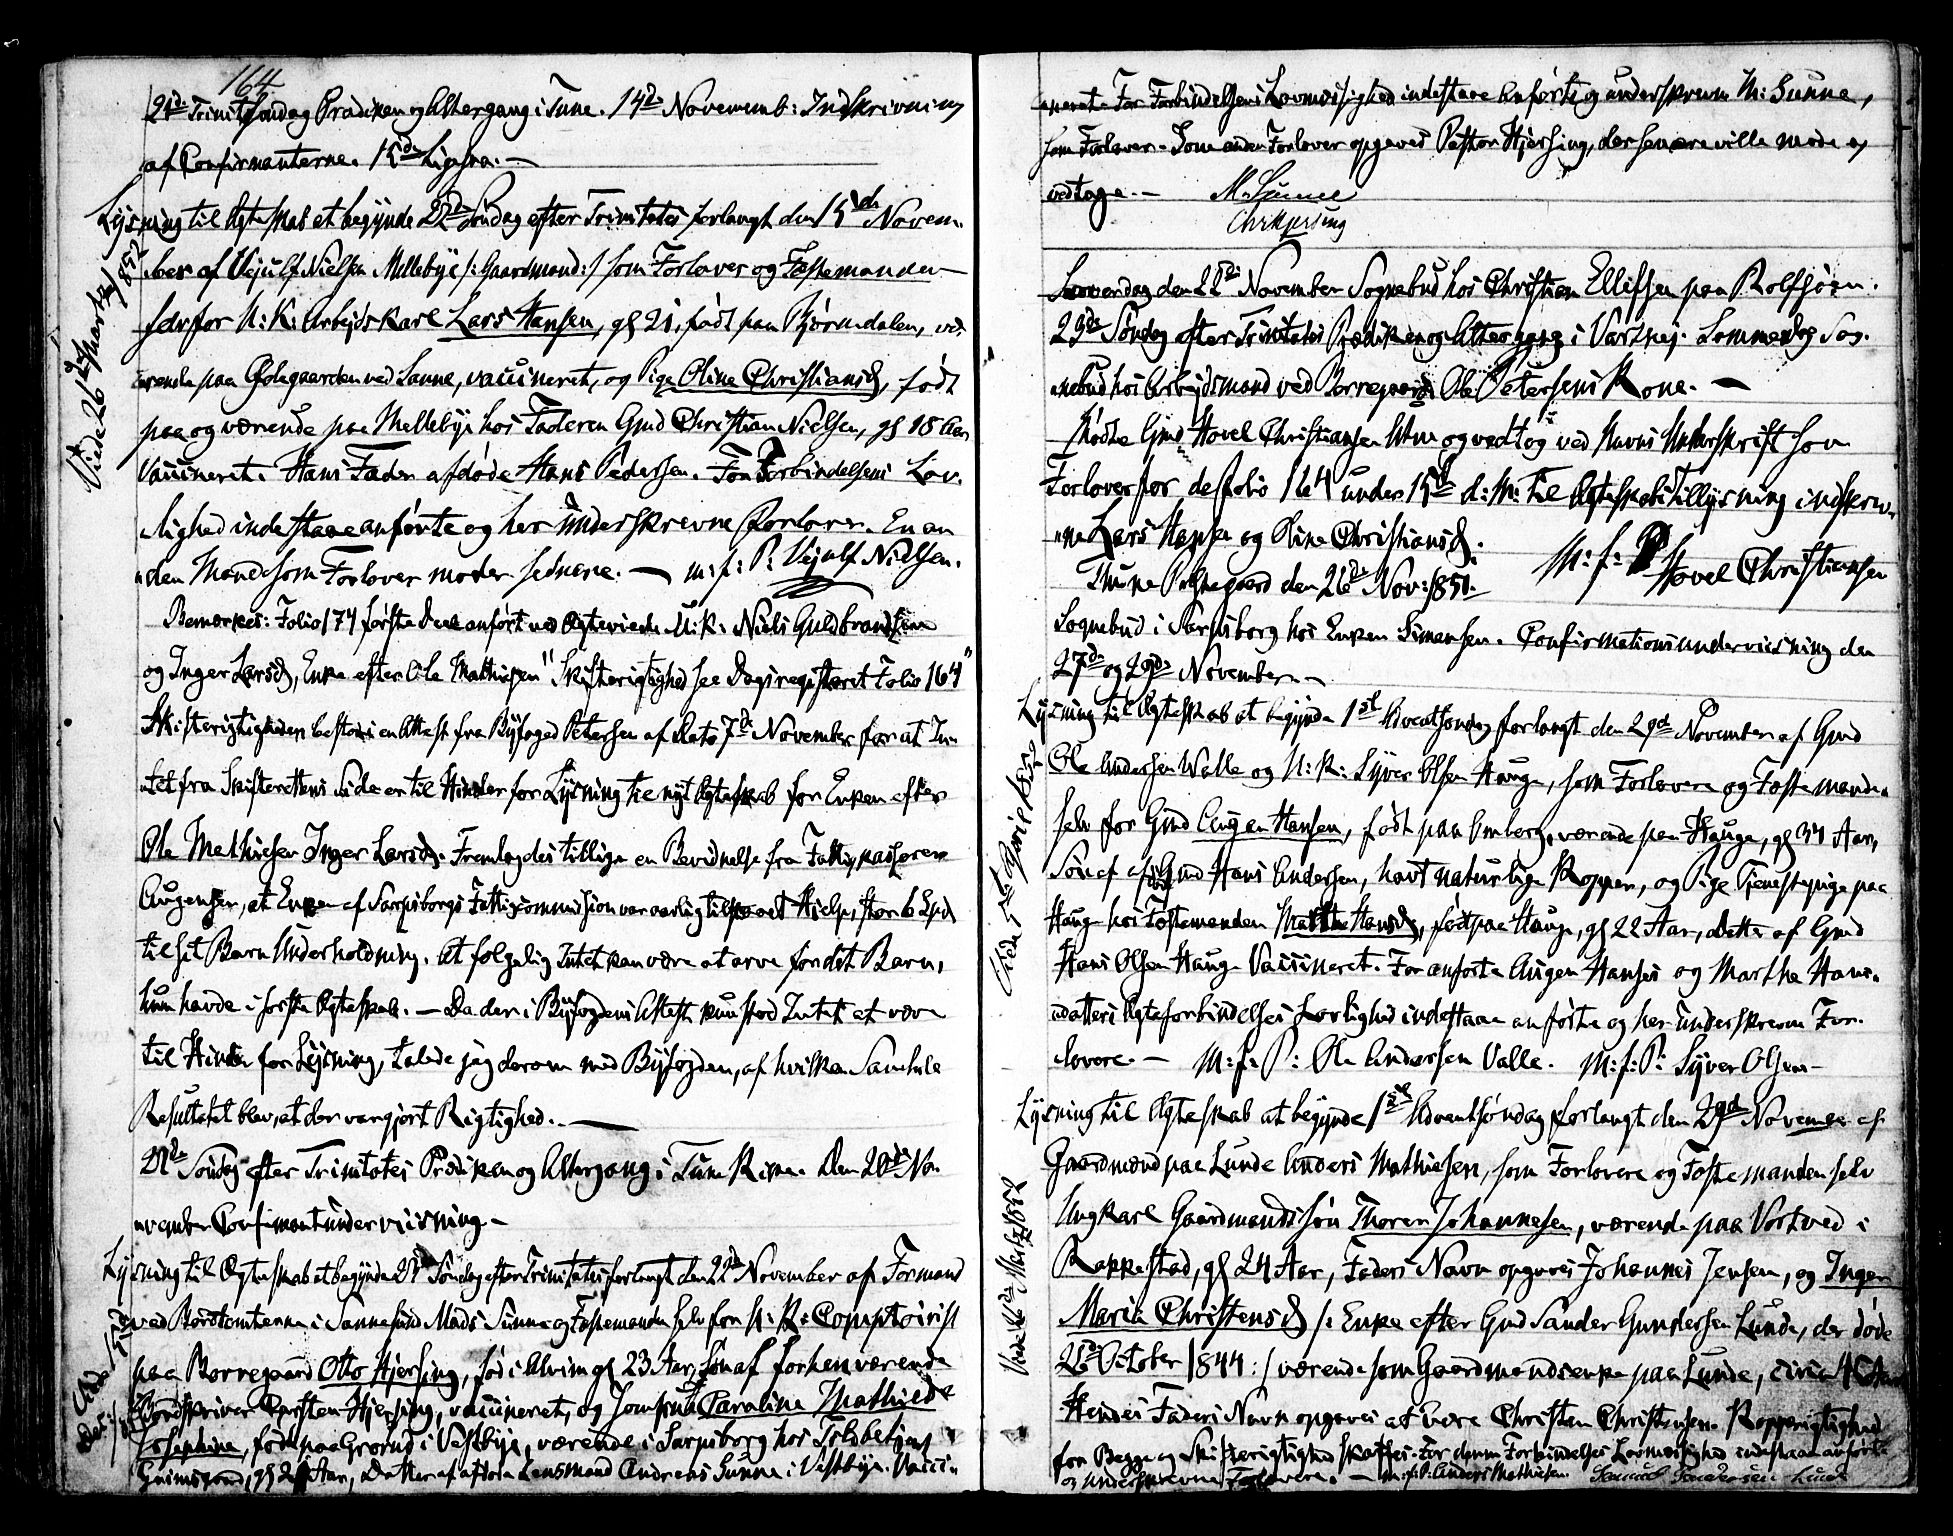 164
21de Trinit Søndag Prædiken og Altergang i Tune. 14de Novemb: Indskrivning
af Confirmanterne. 15de Ligesaa. —
Lysning til Ægteskab at begynde 22de Søndag efter Trinitatis forlangt den 15de Novem-
ber af Vejulf Nielsen Mellebye /: Gaardmand :/ som Forlover og Fæstemanden
selv for U: K: Arbejdskarl Lars Hansen, gl 21, født paa Bjørndalen, væ-
rende paa Golegaarden ved Sanne, vaccineret, og Pige Oline Christiansd, født
paa og værende paa Mellebye hos Faderen Gmd Christian Nielsen, gl 18 Aar
Vaccineret. Hans Fader afdøde Hans Pedersen. For Forbindelsens Lov-
lighed indestaae anførte og her underskrevne Forlover. En an-
den Mand som Forlover møder senere. — m: f: P: Vejulf Nielsen.
Viede 26de Marts 1852
Bemærkes: Folio 174 første Deel anført ved Ægteviede U: K: Niels Guldbrandsen
og Inger Larsd, Enke efter Ole Mathiesen "Skifterigtighed see Dagsregisteret Folio 164"
Skifterigtigheden bestod i en Attest fra Byfoged Petersen af Dato 7de November for at In-
tet fra Skifterettens Side er til Hinder for Lysning til nyt Ægteskab for Enken efter
Ole Mathiesen Inger Larsd. Fremlagdes tillige en Bevidnelse fra Fattigkasserer
Augensen, at Enken af Sarpsborgs Fattigcommission var aarlig tilstaaet Hjelp stor 6 Spd
til sit Barns Underholdning. At følgelig Intet kan være at arve for det Barn,
hun havde i første Ægteskab. — Da der i Byfogdens Attest kun stod Intet at være
til Hinder for Lysning, talede jeg derom med Byfogden, af hvilken Samtale
Resultatet blev, at der var gjort Rigtighed. —
22de Søndag efter Trinitatis Prædiken og Altergang i Tune Kirke. Den 20de No-
vember Confirmantunderviisning —
Lysning til Ægteskab at begynde 23de Søndag efter Trinitatis forlangt den 22de November af Formand
ved Bordtomterne i Sannesund Mads Sunne og Fæstemanden selv for U: K: Comptoirist
paa Borregaard Otto Hjersing, fød i Alvim gl 23 Aar, Søn af forhenværende
Bordskriver Carsten Hjersing, vaccineret, og Jomfru Caroline Mathilde
Josephine, født paa Grorud i Vestbye, værende i Sarpsborg hos Toldbetjent
Grimsgaard, gl 21 Aar, Datter af afdøde Lensmand Andreas Sunne i Vestbye. Vacci-
neret. For Forbindelsens Lovmæssighed indestaae anførte og underskrevne M: Sunne,
som Forlover. Som anden Forlover opgaves Pastor Hjersing, der senere ville møde og
vedtage. — M. Sunne
Chr Hjersing
Løverdag den 22de November Sognebud hos Christian Ellefsen paa Rolfsøen.
23de Søndag efter Trinitatis Prædiken og Altergang i Varteig. Sammedag Sog-
nebud hos Arbejdsmand ved Borregaard Ole Petersens Kone. —
Mødte Gmd Hovel Christiansen og vedtog ved Navns Underskrift som
Forlover for de folio 164 under 15de d: M: til Ægteskabs Tillysning indskrev-
ne Lars Hansen og Oline Christiansd.
Thune Præstegaard den 26de Nov: 1851. m: f: P Hovel Christiansen
Sognebud i Sarpsborg hos Enken Simensen. Confirmationsunderviisning den
27de og 29de November. —
Lysning til Ægteskab at begynde 1st Adventsøndag forlangt den 29d November af Gmd
Ole Andersen Walle og U: K: Syver Olsen Hauge, som Forlovere og Fæstemanden
selv for Gmd Augen Hansen, født paa Amberg, værende paa Hauge, gl 34 Aar,
Søn af afdød Gmd Hans Andersen, havt naturlige Kopper, og Pige Tjenestepige paa
Hauge hos Fæstemanden Marthe Hansd, født paa Hauge, gl 22 Aar, Datter af Gmd
Hans Olsen Hauge Vaccineret. For anførte Augen Hanses og Marthe Hans-
datters Ægteforbindelses Lovlighed indestaae anførte og her underskrevne For-
lovere. — M: f: P: Ole Andersen Valle. M: f: P: Syver Olsen —
Lysning til Ægteskab at begynde 1st Adventsøndag forlangt den 29d November af
Gaardmand paa Lunde Anders Mathiesen, som Forlovere og Fæstemanden selv
Ungkarl Gaardmandssøn Thoren Johannesen, værende paa Vortved i
Rakkestad, gl 24 Aar, Faders Navn opgives Johannes Jensen, og Inger
Maria Christensd /: Enke efter Gmd Sander Gundersen Lunde, der døde
October 1844 :/ værende som Gaardmandsenke paa Lunde, circa
Hendes Faders Navn opgives at være Christen Christensen. Kopperigtighed
for Begge og Skifterigtighed skaffes. For denne Forbindelses Lovmæssighed indestaae anførte
og underskrevne Forlovere. — m: f: P: Anders Mathiesen. Samuel Sandersen Lunde